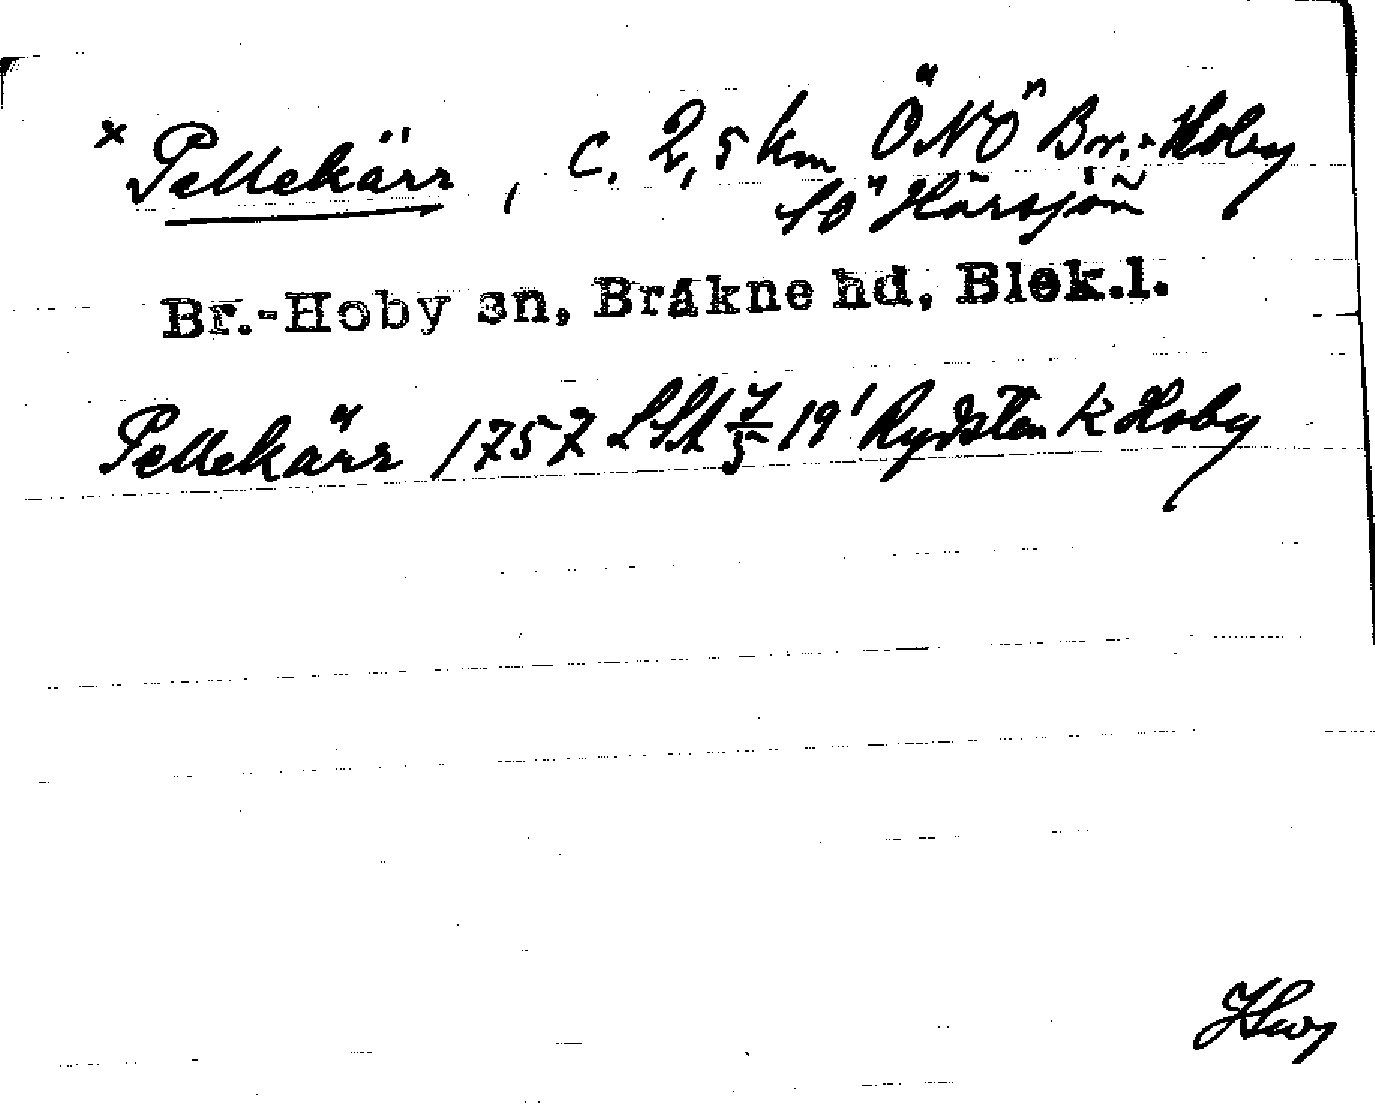 × Pellekärr, c. 2,5 km ÖNÖ Br.-Hoby
SÖ Härsjön
Br.-Hoby sn, Bräkne hd, Blek.l.
Pellekärr 1757 LSA 7/5 19' Rydsten K Hoby